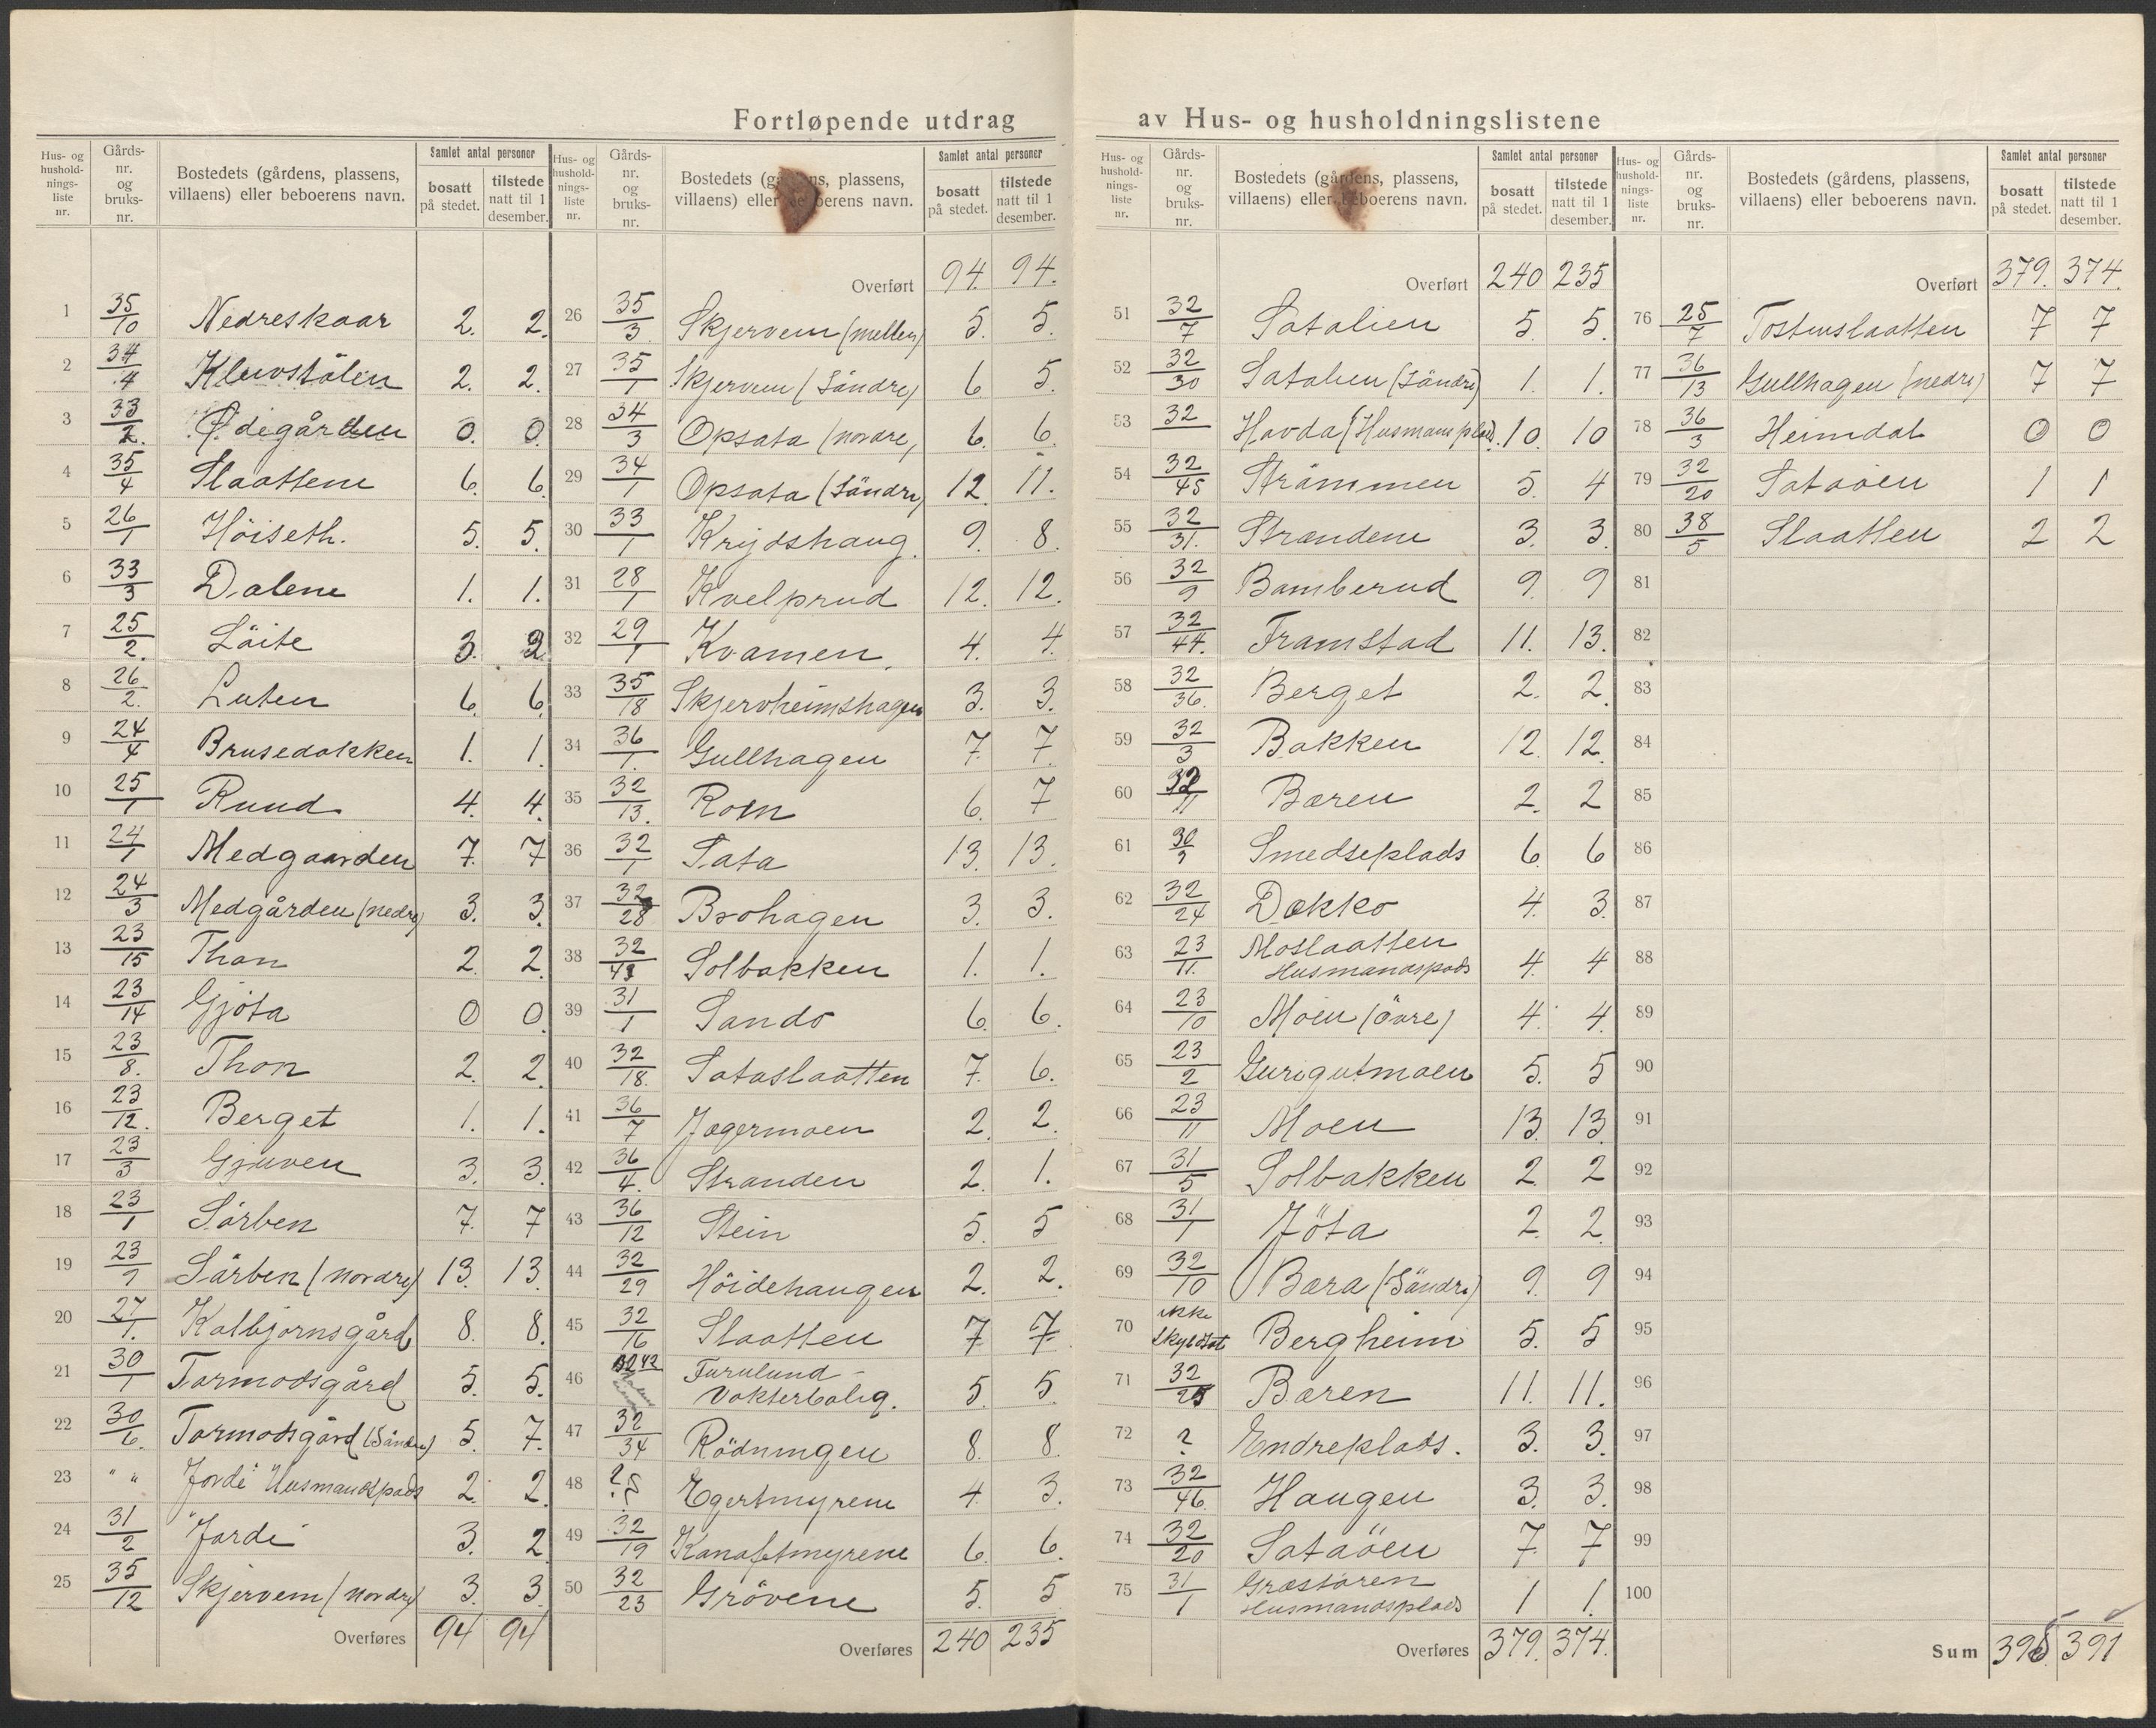 Fortløpende utdrag av Hus- og husholdningslistene
Hus- og husholdningsliste nr. | Gårds-nr. og bruks-nr. | Bostedets (gårdens, plassens, villaens) eller beboerens navn. | Samlet antal personer bosatt på stedet. | tilstede natt til 1 desember.
1 35/10 Nedreskaar 2. 2.
2 34/4 Kluvstölen 2. 2.
3 33/2. Ødegården 0. 0.
4 35/4 Slaattene 6. 6.
5 26/1 Höiseth. 5. 5.
6 33/3 Dalene 1. 1.
7 25/2. Löite 3. 3
8 26/2. Luten 6. 6.
9 24/4 Brusedokken 1. 1.
10 25/1 Ruud 4. 4.
11 24/1 Medgaarden 7. 7
12 24/3 Medgården (nedre) 3. 3.
13 23/15 Thon 2. 2.
14 23/14 Gjöta 0 0.
15 23/8. Thon 2. 2.
16 23/12. Berget 1. 1.
17 23/3 Gjuven 3. 3.
18 23/1 Sørben 7. 7.
19 23/9 Sørben (nordre) 13. 13
20 27/1. Kolbjørnsgård 8. 8.
21 30/1 Tormodsgård 5. 5.
22 30/6. Tormodsgård (Söndre) 5. 7.
23 " " Jordi Husmandspads 2. 2.
24 31/2 Jordi 3. 2
25 35/12 Skjervem (nordre) 3. 3.
Overføres 94 94
Hus- og husholdningsliste nr. | Gårds-nr. og bruks-nr. | Bostedets (gårdens, plassens, villaens) eller beboerens navn. | Samlet antal personer bosatt på stedet. | tilstede natt til 1 desember.
Overført 94. 94.
26 35/3 Skjervem (mellem) 5. 5.
27 35/1 Skjervem (Söndre) 6. 5.
28 34/3 Opsata (nordre) 6. 6.
29 34/1 Opsata (Söndre) 12. 11.
30 33/1 Krydshaug. 9. 8.
31 28/1 Kvelprud 12. 12.
32 29/1 Kvamen. 4. 4.
33 35/18 Skjervheimshagen 3. 3.
34 36/1. Gullhagen 7. 7.
35 32/13. Roen 6. 7
36 32/1 Sata 13. 13.
37 32/28 Brohagen 3. 3.
38 32/ Solbakken 1. 1.
39 31/1 Sando 6. 6.
40 32/18. Sataslaatten 7. 6.
41 36/7 Jægermoen 2. 2.
42 36/4. Stranden 2. 1.
43 36/12 Stein 5. 5
44 32/29 Höidehaugen 2. 2.
45 32/16 Slaatten 7 7.
46 3242 Furulund - Vokterbolig. 5. 5.
47 32/34 Rödningen 8. 8.
48 ? Egertmyrene 4. 3.
49 32/19 Kanaftmyrene 6. 6.
50 32/23 Grövene 5. 5
Overføres 240 235
Hus- og husholdningsliste nr. | Gårds-nr. og bruks-nr. | Bostedets (gårdens, plassens, villaens) eller beboerens navn. | Samlet antal personer bosatt på stedet. | tilstede natt til 1 desember.
Overført 240 235
51 32/7 Satalien 5. 5.
52 32/30 Satalien (Söndre) 1. 1.
53 32 Hovda (Husmansplads. 10. 10
54 32/45 Strömmen 5. 4
55 32/31. Strandene 3. 3.
56 32/9 Bamberud 9. 9
57 32/44. Framstad 11. 13.
58 32/36. Berget 2. 2
59 32/3 Bakken 12. 12.
60 32/11 Bæren 2. 2
61 30/9 Smedseplads 6. 6
62 32/24 Dokko 4. 3.
63 23/11. Moslaatten Husmandspads 4. 4
64 23/10 Moen (övre) 4. 4.
65 23/2 Gurigutmoen 5. 5
66 23/11 Moen 13. 13.
67 31/5 Solbakken 2. 2
68 31/1 Jöta 2. 2.
69 32/10 Bæra (Söndre) 9. 9
70 ikke Skyldsat Bergheim 5. 5
71 32/25 Bæren 11. 11.
72 ? Endreplads. 3. 3.
73 32/46. Haugen 3. 3.
74 32/20 Sataöen 7. 7
75 31/1 Græstøren Husmandsplads 1 1.
Overføres 379. 374.
Hus- og husholdningsliste nr. | Gårds-nr. og bruks-nr. | Bostedets (gårdens, plassens, villaens) eller beboerens navn. | Samlet antal personer bosatt på stedet. | tilstede natt til 1 desember.
Overført 379. 374.
76 25/7 Tostenslaatten 7 7
77 36/13 Gullhagen (nedre) 7 7
78 36/3 Heimdal 0 0
79 32/20 Sataöen 1 1
80 38/5 Slaatten 2 2
81
82
83
84
85
86
87
88
89
90
91
92
93
94
95
96
97
98
99
100
Sum 396 391